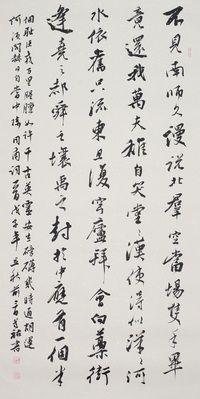 不見南師久謾說北群空當場隻手畢
竟還我萬夫雄自笑堂堂漢使得似洋洋河
水依舊只流東且復穹廬拜會向藁街
逢堯之都舜之壤禹之封於中應有一個半
個恥臣戎萬里腥膻如許千古英靈安在磅礴幾時通胡運
何須問赫日自當中陳同甫詞戊子年立秋前書